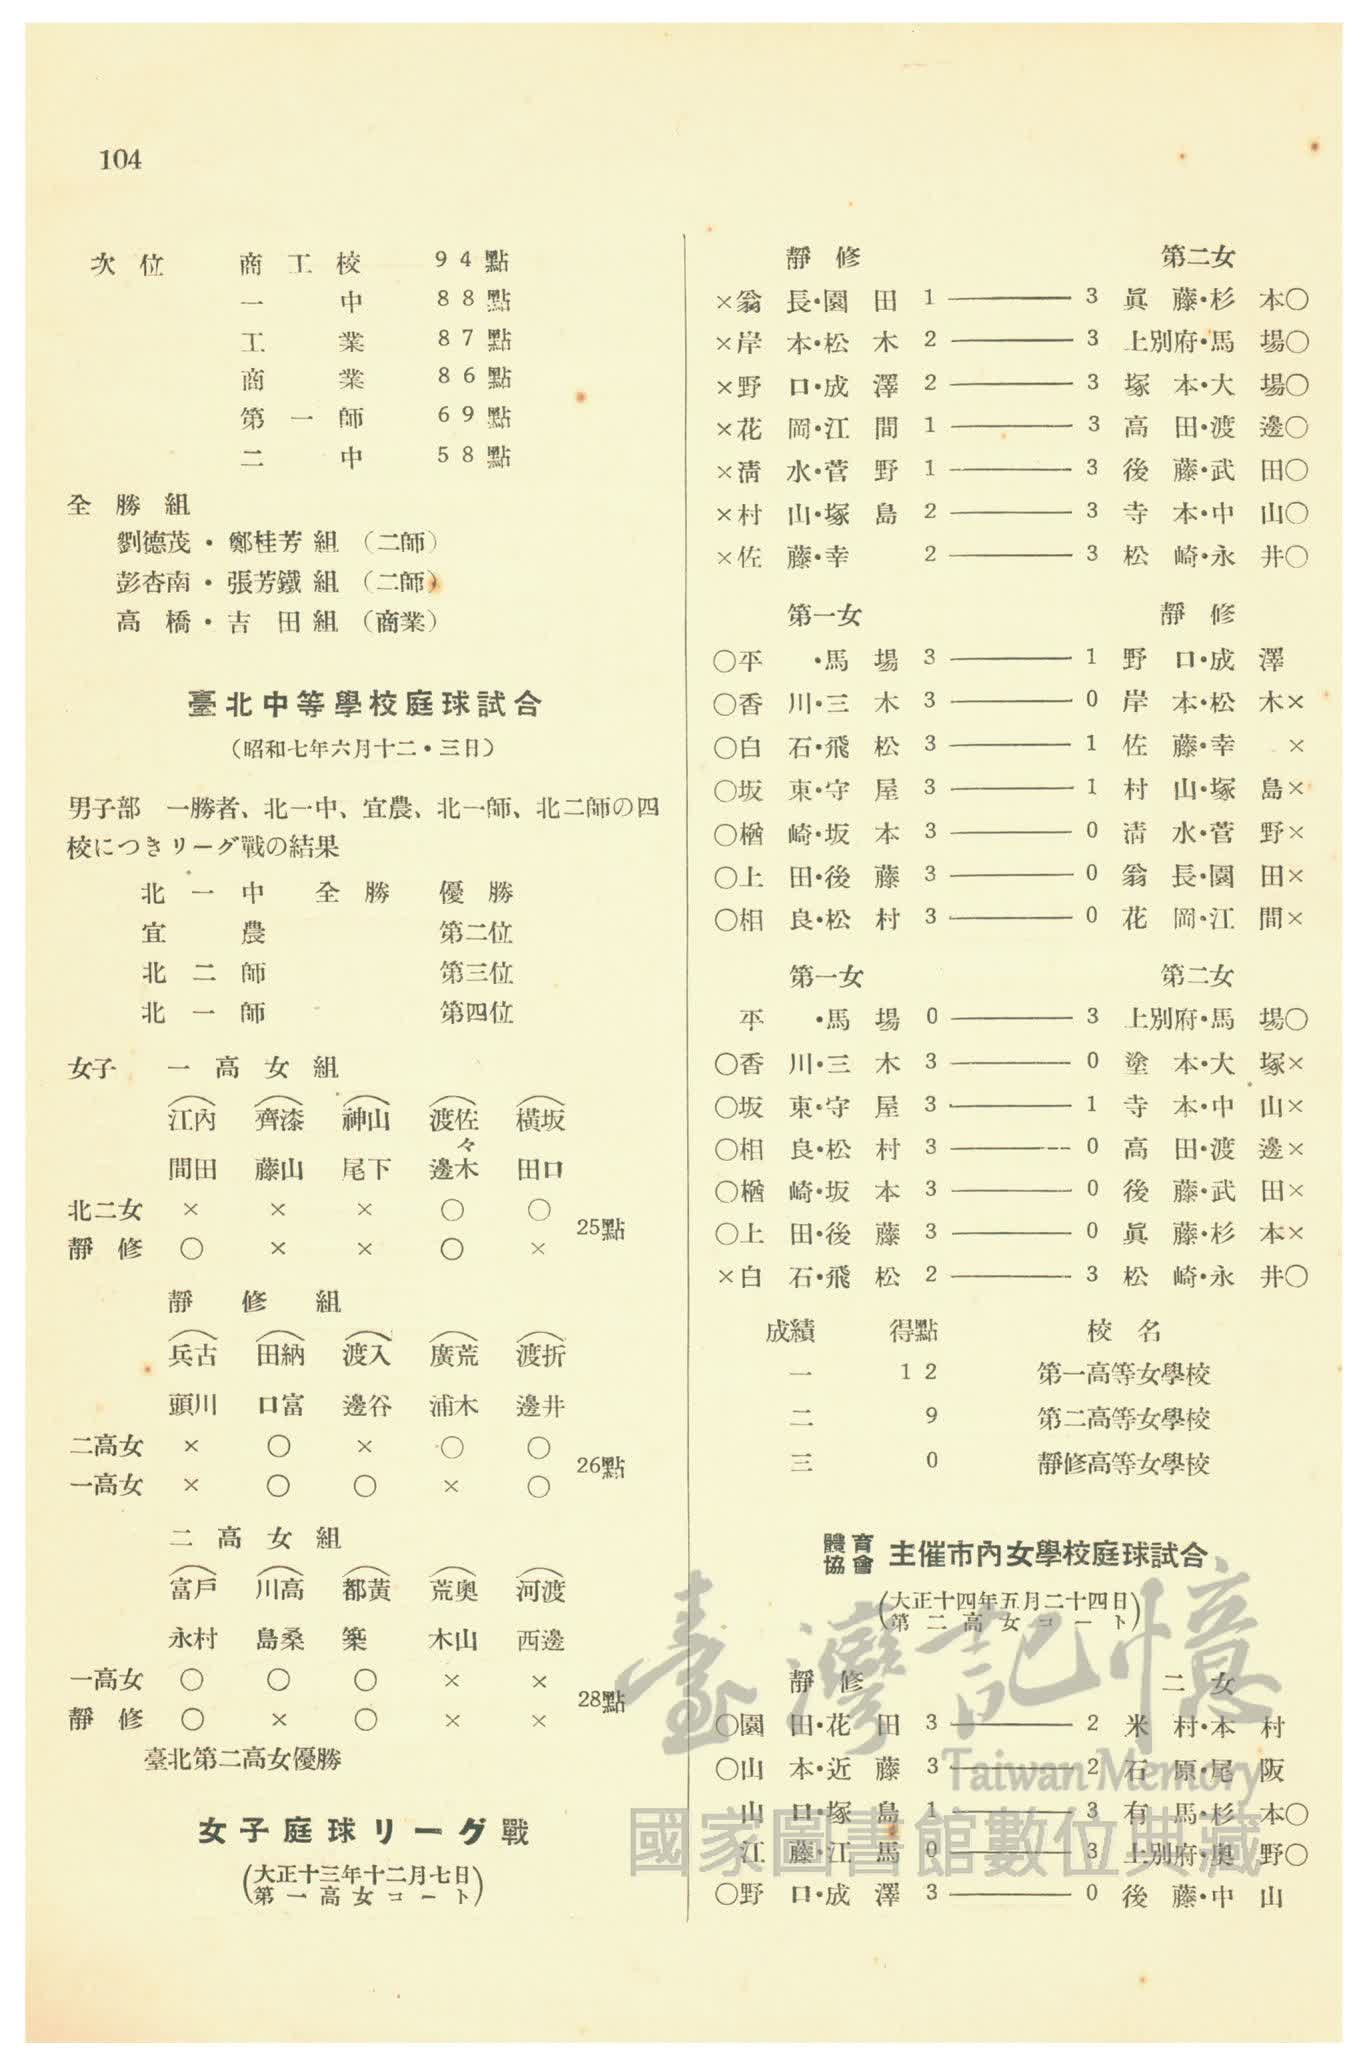 104
次位 商工校 94點
一中 88點
工業 87點
商業 86點
第一師 69點
二中 58點
全勝組
劉德茂・鄭桂芳組 (二師)
彭杏南・張芳鐵組 (二師)
高橋・吉田組 (商業)
臺北中等學校庭球試合
(昭和七年六月十二・三日)
男子部 一勝者、北一中、宜農、北一師、北二師の四
校につきリーグ戰の結果
北一中 全勝 優勝
宜農 第二位
北二師 第三位
北一師 第四位
女子 一高女組
江內 齊漆 神山 渡佐々 橫坂
間田 藤山 尾下 邊木 田口
北二女 × × × ○ ○
25點
靜修 ○ × × ○ ×
靜修組
兵古 田納 渡入 廣荒 渡折
頭川 口富 邊谷 浦木 邊井
二高女 × ○ × ○ ○
26點
一高女 × ○ ○ × ○
二高女組
富戶 川高 都黃 荒奧 河渡
永村 島桑 築 木山 西邊
一高女 ○ ○ ○ × ×
28點
靜修 ○ × ○ × ×
臺北第二高女優勝
女子庭球リーグ戰
(大正十三年十二月七日
第一高女コート)
靜修 第二女
×翁長・園田 1——3 眞藤・杉本○
×岸本・松木 2——3 上別府・馬場○
×野口・成澤 2——3 塚本・大場○
×花岡・江間 1——3 高田・渡邊○
×淸水・菅野 1——3 後藤・武田○
×村山・塚島 2——3 寺本・中山○
×佐藤・幸 2——3 松崎・永井○
第一女 靜修
○平・馬場 3——1 野口・成澤
○香川・三木 3——0 岸本・松木×
○白石・飛松 3——1 佐藤・幸×
○坂東・守屋 3——1 村山・塚島×
○楢崎・坂本 3——0 淸水・菅野×
○上田・後藤 3——0 翁長・園田×
○相良・松村 3——0 花岡・江間×
第一女 第二女
平・馬場 0——3 上別府・馬場○
○香川・三木 3——0 塗本・大塚×
○坂東・守屋 3——1 寺本・中山×
○相良・松村 3——0 高田・渡邊×
○楢崎・坂本 3——0 後藤・武田×
○上田・後藤 3——0 眞藤・杉本×
×白石・飛松 2——3 松崎・永井○
成績 得點 校名
一 12 第一高等女學校
二 9 第二高等女學校
三 0 靜修高等女學校
體育協會 主催市內女學校庭球試合
(大正十四年五月二十四日
第二高女コート)
靜修 二女
○園田・花田 3——2 米村・本村
○山本・近藤 3——2 石原・尾阪
山口・塚島 1——3 有馬・杉本○
江藤・江馬 0——3 上別府・奧野○
○野口・成澤 3——0 後藤・中山
臺灣記憶
Taiwan Memory
國家圖書館數位典藏